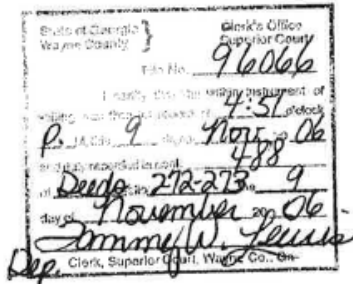 State of Georgia } Clerk's Office
Wayne County Superior Court
File No. 96066
I certify that the within instrument of
writing was filed for record at 4:51 o'clock
P. M. this 9 day of Nov. 06
and duly recorded in 488
of Deeds 272-273 9
day of November 20 06
Tammy W. Lewis
Dep. Clerk, Superior Court, Wayne Co., Ga.